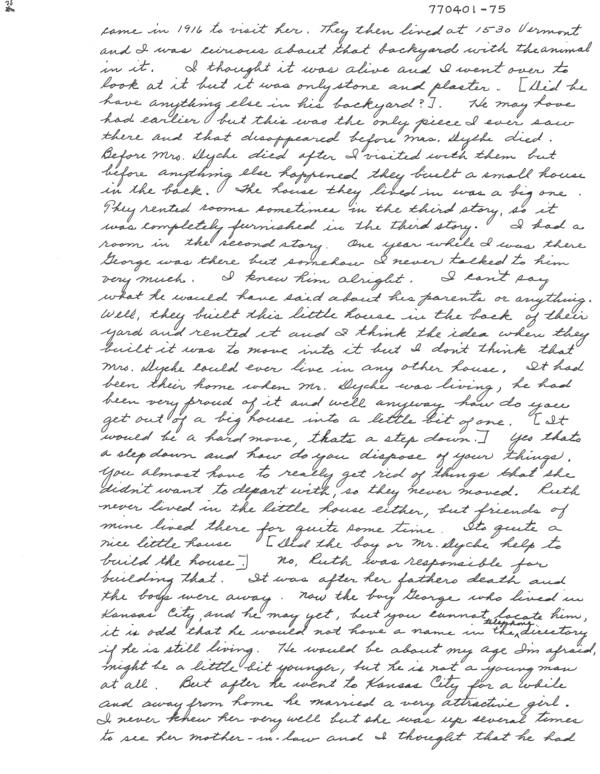 770401-75
came in 1916 to visit her. They then lived at 1530 Vermont
and I was curious about that backyard with the animal
in it. I thought it was alive and I went over to
look at it but it was only stone and plaster. [Did he
have anything else in his backyard?]. He may have
had earlier but this was the only piece I ever saw
there and that disappeared before Mrs. Dyche died.
Before Mrs. Dyche died after I visited with them but
before anything else happened they built a small house
in the back. The house they lived in was a big one.
They rented rooms sometimes in the third story, so it
was completely furnished in the third story. I had a
room in the second story. One year while I was there
George was there but somehow I never talked to him
very much. I knew him alright. I can't say
what he would have said about his parents or anything.
Well, they built this little house in the back of their
yard and rented it and I think the idea when they
built it was to move into it but I don't think that
Mrs. Dyche could ever live in any other house. It had
been their home when Mr. Dyche was living, he had
been very proud of it and well anyway how do you
get out of a big house into a little bit of one. [It
would be a hard move, thats a step down.] Yes thats
a step down and how do you dispose of your things.
You almost have to really get rid of things that she
didn't want to depart with, so they never moved. Ruth
never lived in the little house either, but friends of
mine lived there for quite some time. Its quite a
nice little house [Did the boy or Mr. Dyche help to
build the house] No, Ruth was responsible for
building that. It was after her fathers death and
the boys were away. Now the boy George who lived in
Kansas City, and he may yet, but you cannot locate him,
it is odd that he would not have a name in the telephone directory
if he is still living. He would be about my age I'm afraid,
might be a little bit younger, but he is not a young man
at all. But after he went to Kansas City for a while
and away from home he married a very attractive girl.
I never knew her very well but she was up several times
to see her mother-in-law and I thought that he had